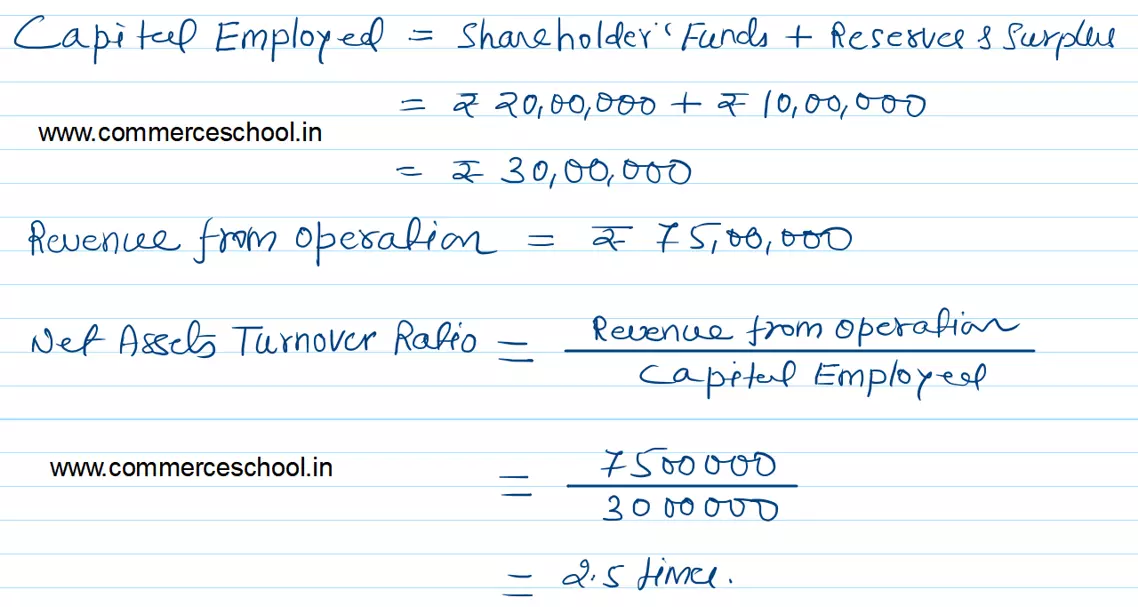 Capital Employed = Shareholder's Funds + Reserves & Surplus
= ₹ 20,00,000 + ₹ 10,00,000
www.commerceschool.in
= ₹ 30,00,000
Revenue from operation = ₹ 75,00,000
Net Assets Turnover Ratio = Revenue from operation
Capital Employed
www.commerceschool.in
= 7500000
3000000
= 2.5 times.